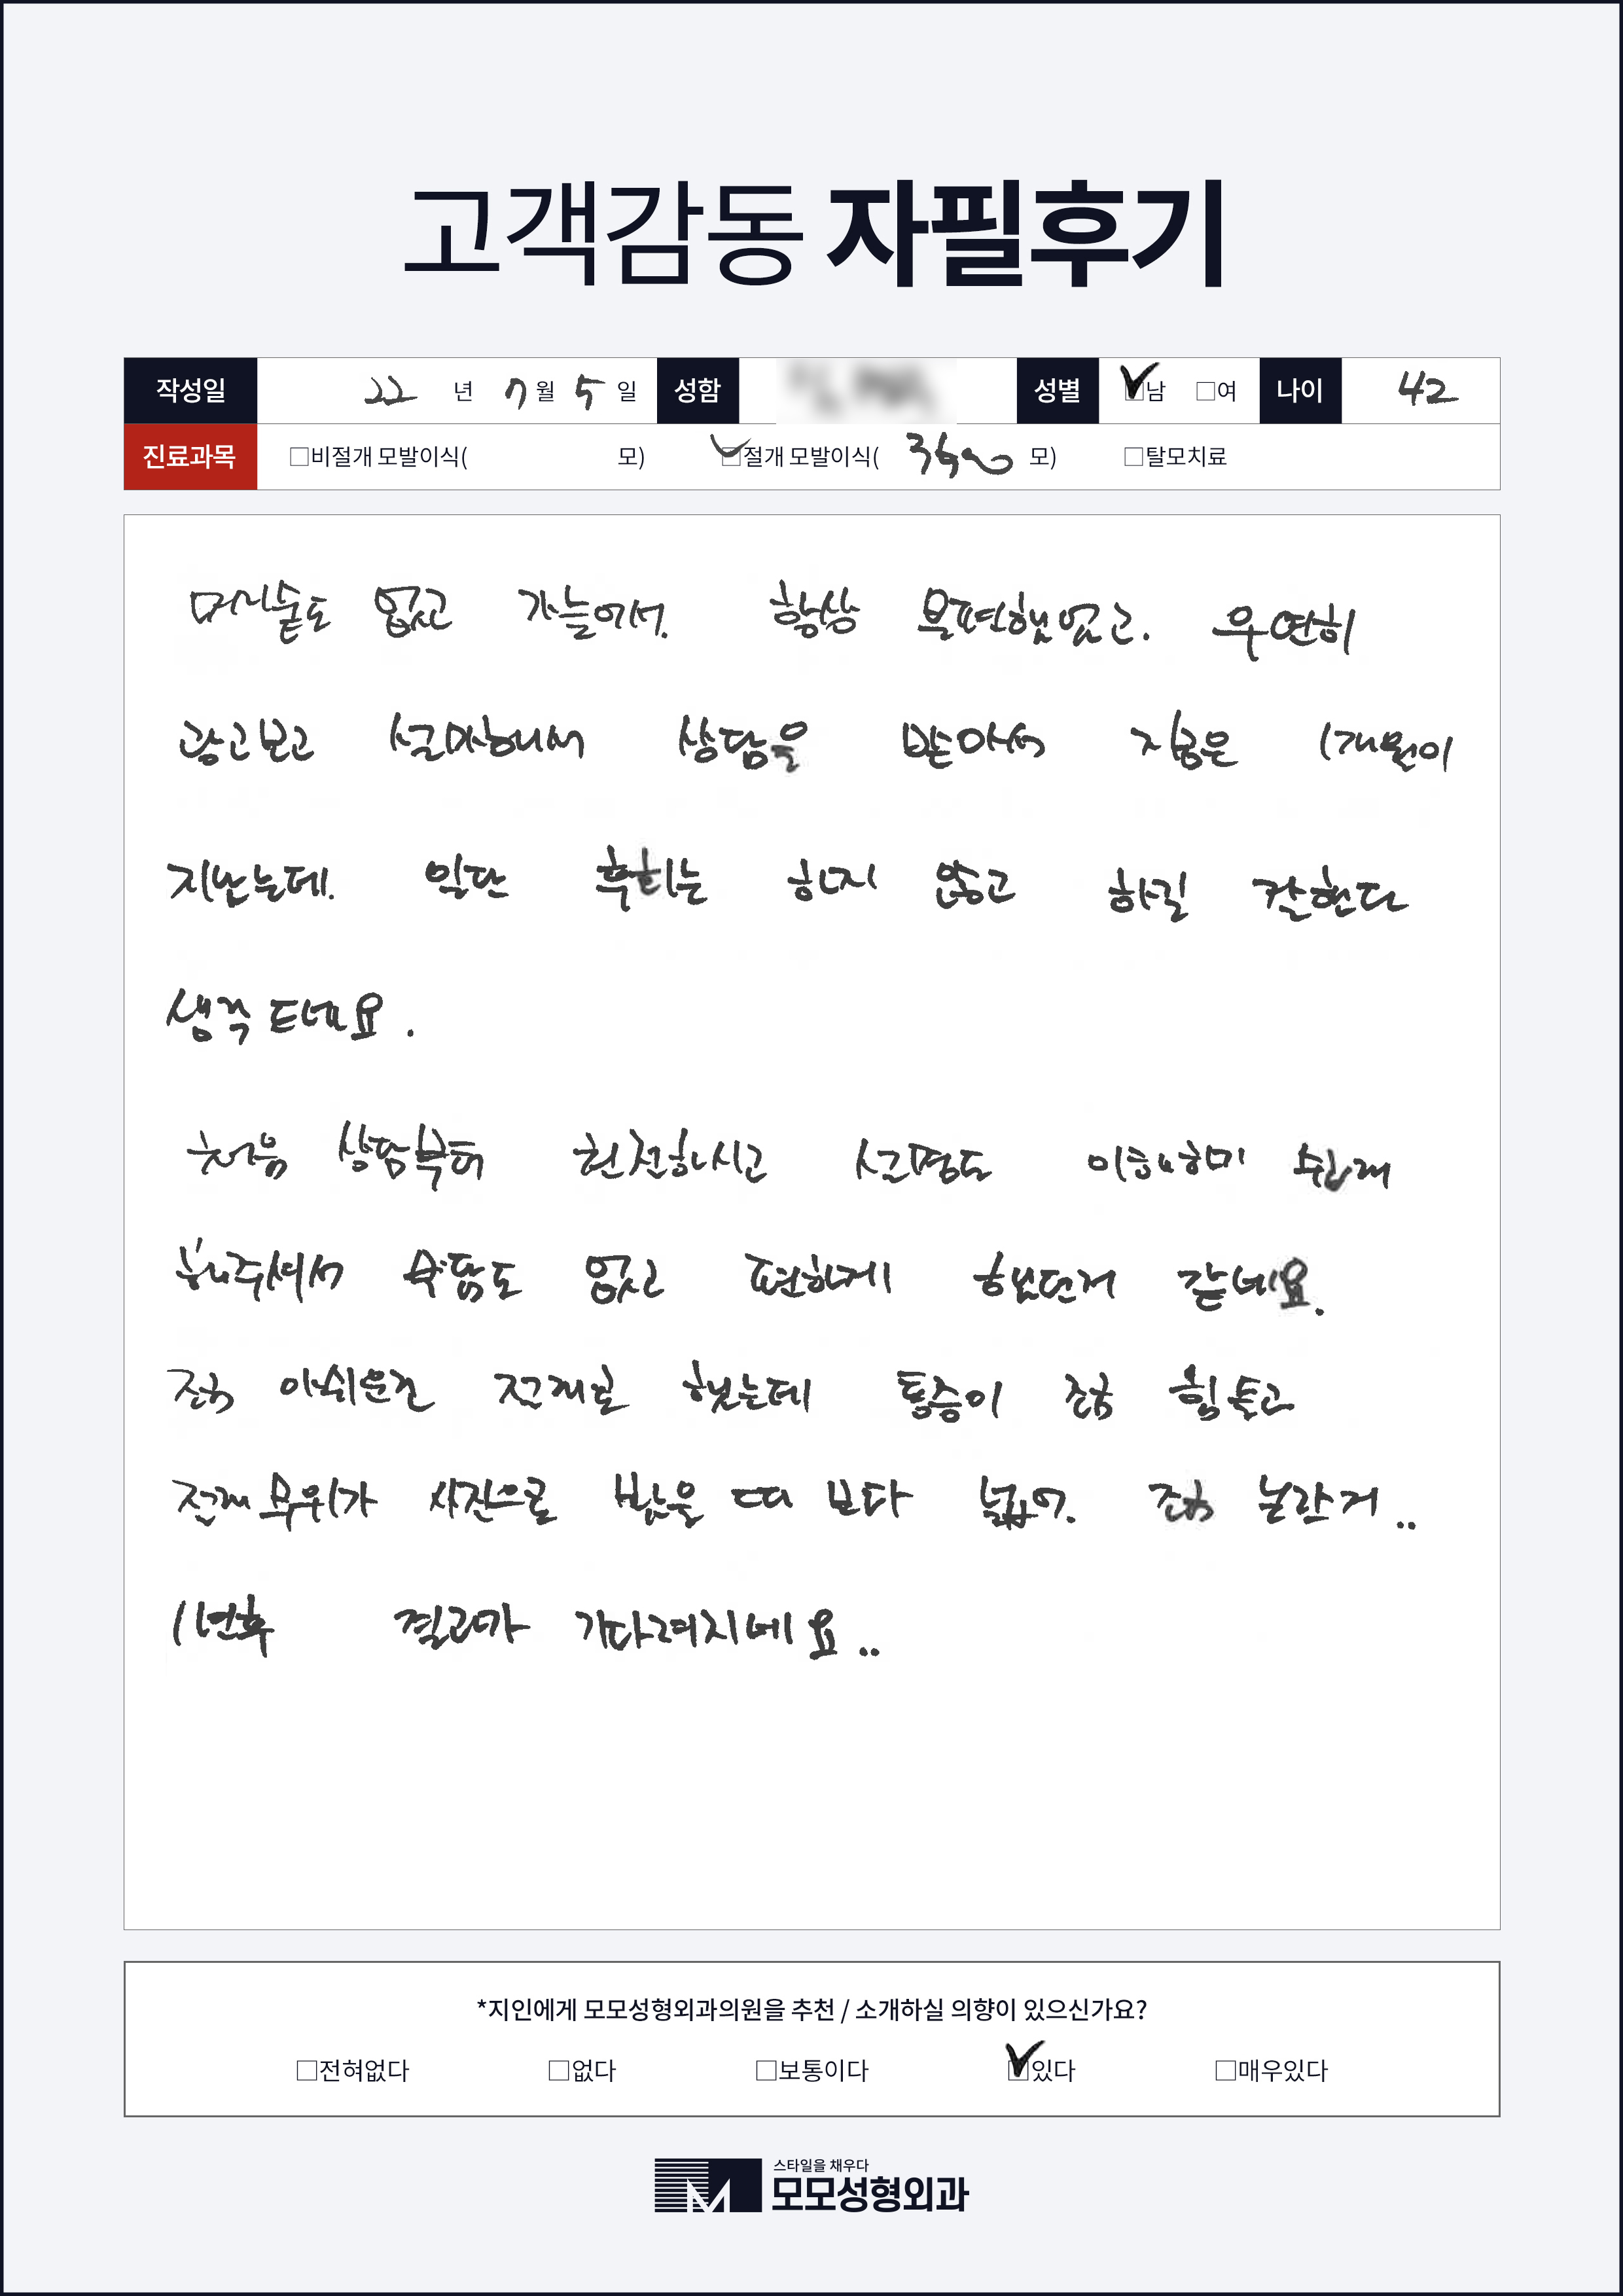 고객감동 자필후기
작성일 22 년 7 월 5 일 성함 성별 ☑남 □여 나이 42
진료과목 □비절개 모발이식( 모) ☑절개 모발이식( 3500 모) □탈모치료
머리숱도 없고 가늘어서. 항상 불편했었고. 우연히
광고보고 설마해서 상담을 받아서 지금은 1개월이
지났는데. 일단 후회는 하지 않고 하길 잘한다
생각 드네요.
처음 상담부터 친절하시고 설명도 이해하기 쉽게
해주셔서 부담도 없고 편하게 했던거 같네요.
조금 아쉬운건 절개로 했는데 통증이 조금 힘들고
절개부위가 사진으로 봤을 때 보다 넓어. 조금 놀란거..
1년후 결과가 기다려지네요..
*지인에게 모모성형외과의원을 추천 / 소개하실 의향이 있으신가요?
□전혀없다 □없다 □보통이다 ☑있다 □매우있다
스타일을 채우다
모모성형외과